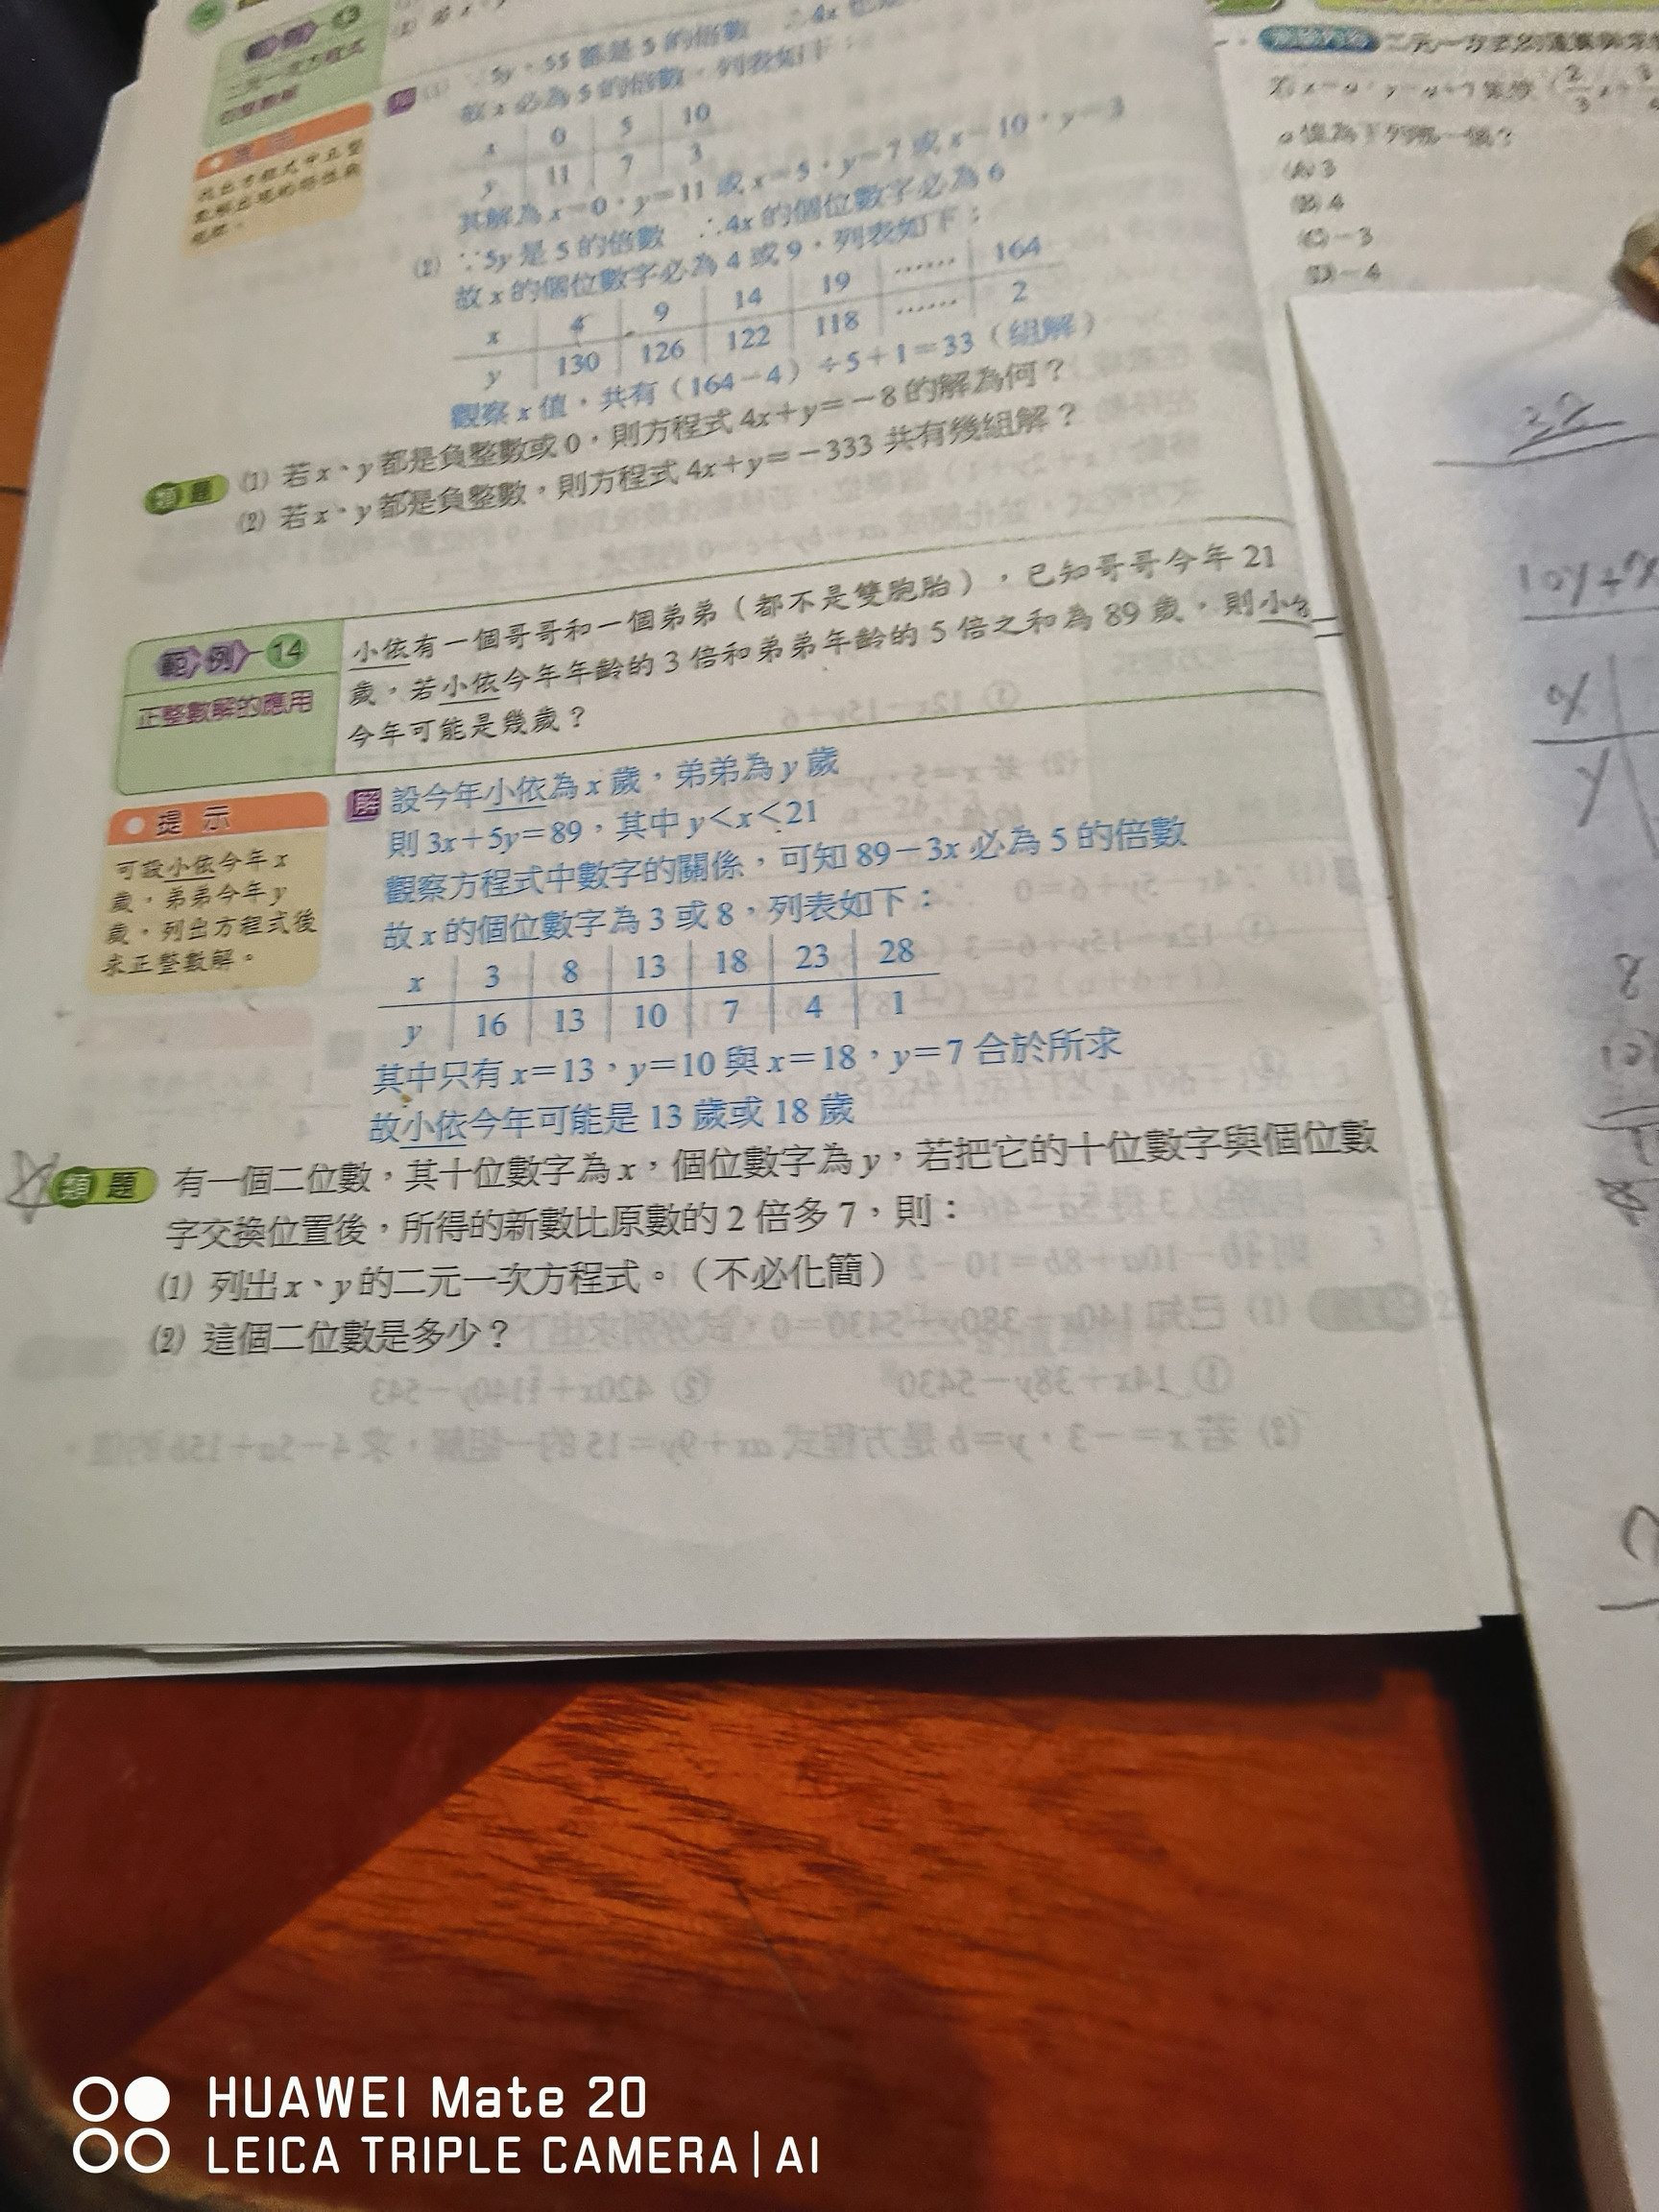 二元一次方程式
(1) ∵5y、55 都是 5 的倍數 ∴4x
故 x 必為 5 的倍數,列表如下:
x 0 5 10
y 11 7 3
其解為 x=0,y=11 或 x=5,y=7 或 x=10,y=3
(2) ∵5y 是 5 的倍數 ∴4x 的個位數字必為 6
故 x 的個位數字必為 4 或 9,列表如下:
x 4 9 14 19 …… 164
y 130 126 122 118 …… 2
觀察 x 值,共有(164-4)÷5+1=33(組解)
類題 (1) 若 x、y 都是負整數或 0,則方程式 4x+y=-8 的解為何?
(2) 若 x、y 都是負整數,則方程式 4x+y=-333 共有幾組解?
範例 14
正整數解的應用
小依有一個哥哥和一個弟弟(都不是雙胞胎),已知哥哥今年 21
歲,若小依今年年齡的 3 倍和弟弟年齡的 5 倍之和為 89 歲,則小
今年可能是幾歲?
提示
可設小依今年 x
歲,弟弟今年 y
歲,列出方程式後
求正整數解。
解 設今年小依為 x 歲,弟弟為 y 歲
則 3x+5y=89,其中 y<x<21
觀察方程式中數字的關係,可知 89-3x 必為 5 的倍數
故 x 的個位數字為 3 或 8,列表如下:
x 3 8 13 18 23 28
y 16 13 10 7 4 1
其中只有 x=13,y=10 與 x=18,y=7 合於所求
故小依今年可能是 13 歲或 18 歲
類題 有一個二位數,其十位數字為 x,個位數字為 y,若把它的十位數字與個位數
字交換位置後,所得的新數比原數的 2 倍多 7,則:
(1) 列出 x、y 的二元一次方程式。(不必化簡)
(2) 這個二位數是多少?
a 值為下列哪一個?
(A) 3
(B) 4
(C) -3
(D) -4
22
10y+x
x
y
8
HUAWEI Mate 20
LEICA TRIPLE CAMERA | AI